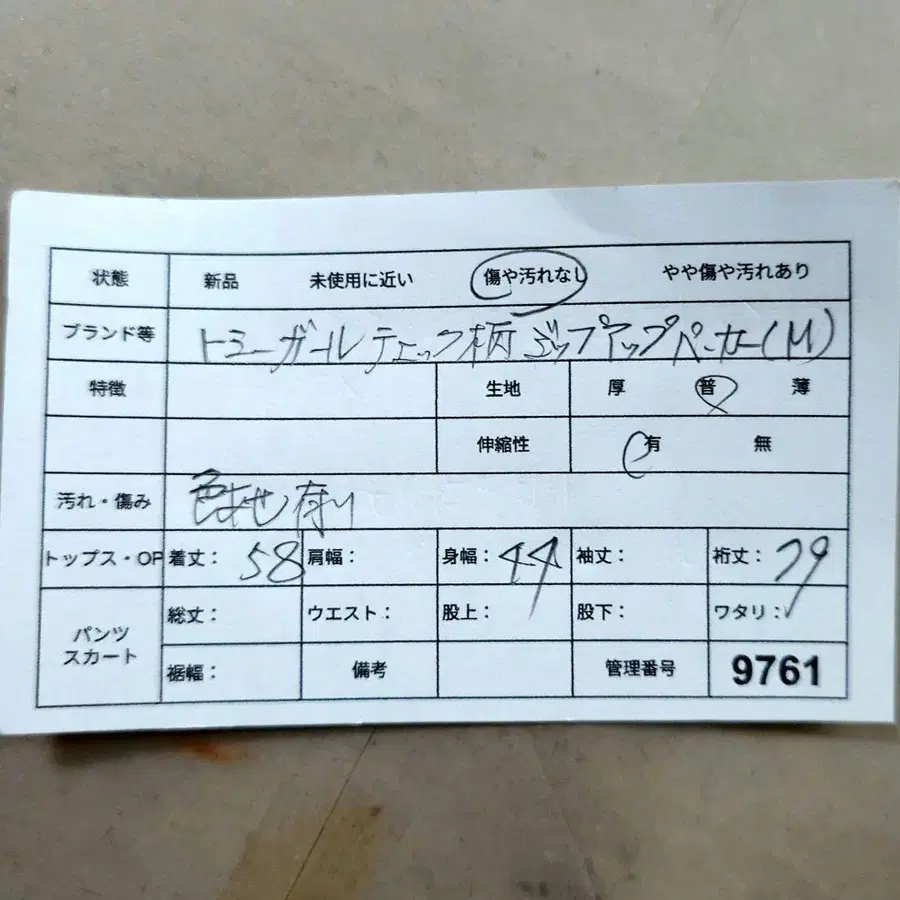 状態 新品 未使用に近い 傷や汚れなし やや傷や汚れあり
ブランド等 トミーガール チェック柄 ジップアップパーカー(M)
特徴 生地 厚 普 薄
伸縮性 有 無
汚れ・傷み 色あせ有り
トップス・OP 着丈: 58 肩幅: 身幅: 44 袖丈: 裄丈: 79
パンツ スカート 総丈: ウエスト: 股上: 股下: ワタリ:
裾幅: 備考 管理番号 9761